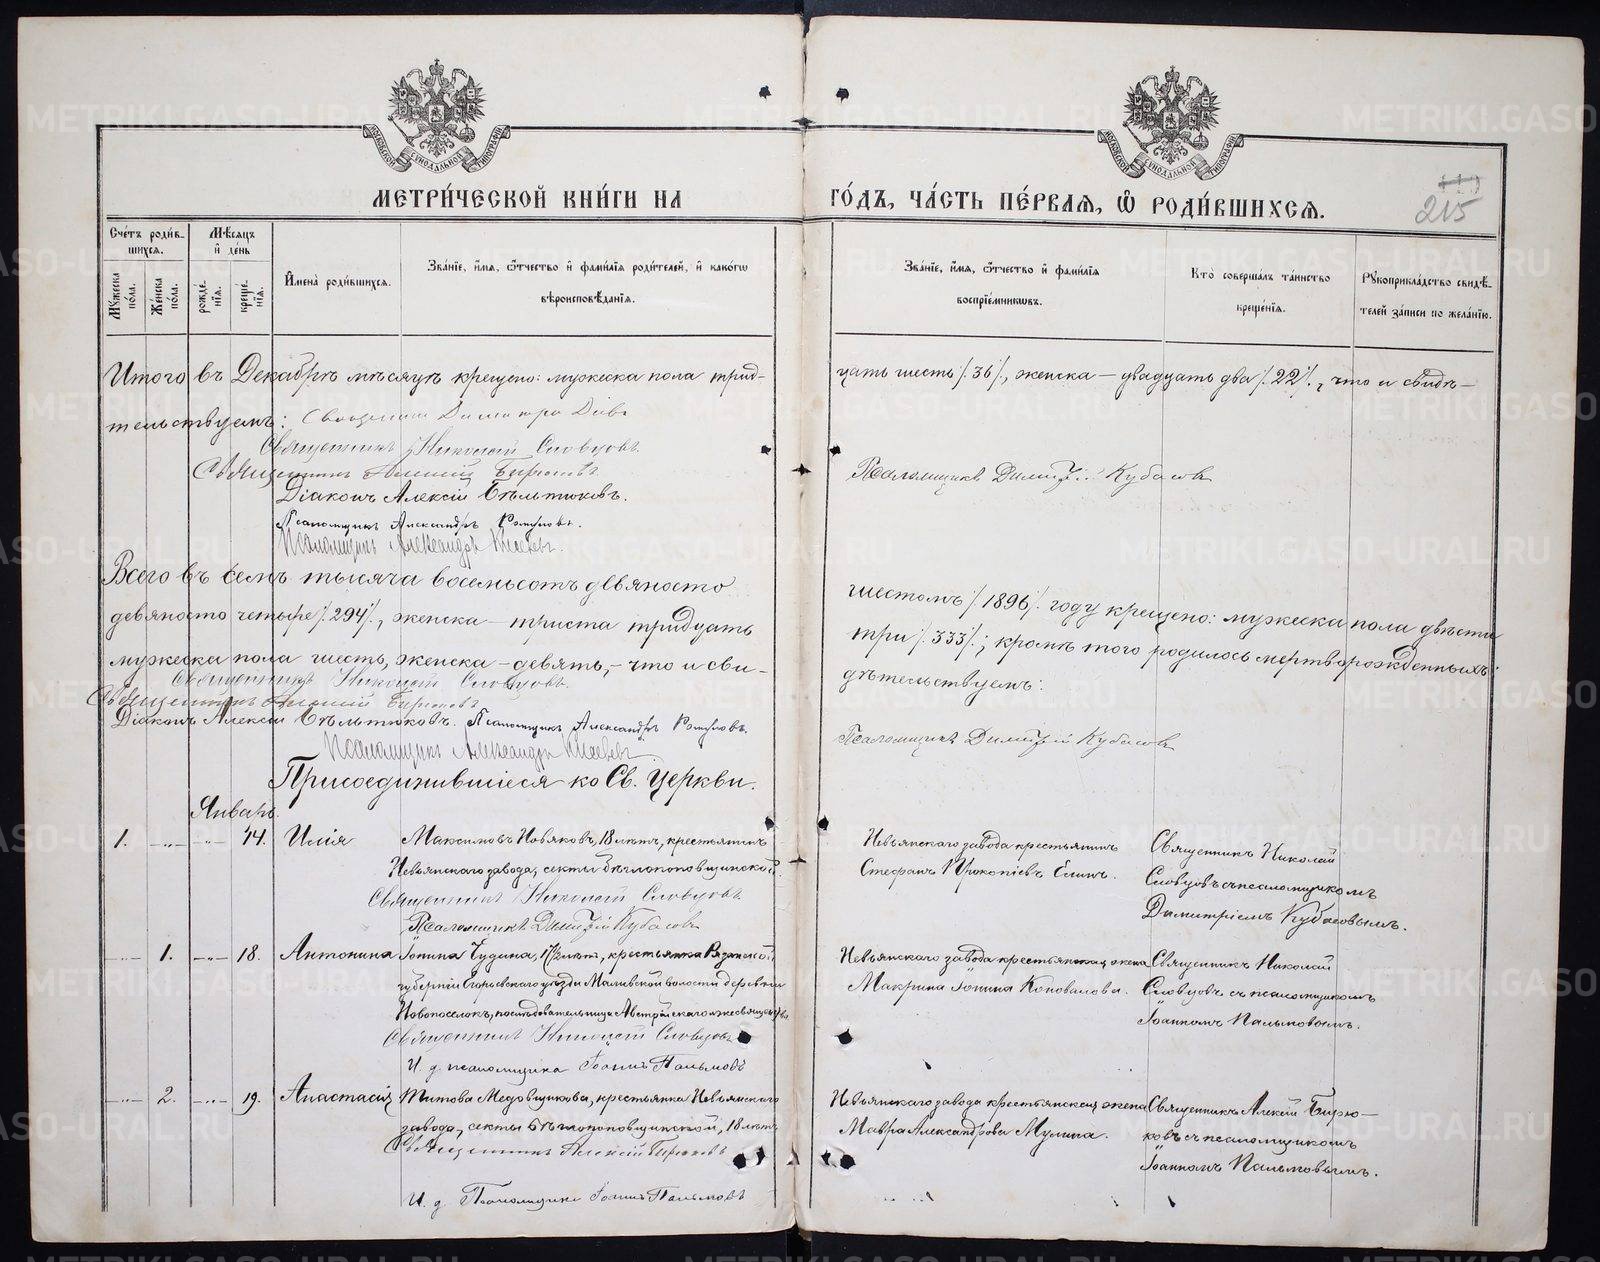 МОСКОВСКОЙ СѴНОДАЛЬНОЙ ТИПОГРАФІИ
МОСКОВСКОЙ СѴНОДАЛЬНОЙ ТИПОГРАФІИ
МЕТРИ́ЧЕСКОЙ КНИ́ГИ НА ГО́ДЪ, ЧА́СТЬ ПЕ́РВАѦ, Ѽ РОДИ́ВШИХСѦ.
215
Сче́тъ роди́вшихсѧ.
Мѣ́сѧцъ и҆ де́нь
Мꙋ́жеска по́ла.
Же́нска по́ла.
рожде́нїѧ.
креще́нїѧ.
И҆мена̀ роди́вшихсѧ.
Зва́нїе, и҆́мѧ, ѻ҆́тчество и҆ фами́лїѧ роди́телей, и҆ како́гѡ
вѣроисповѣ́данїѧ.
Зва́нїе, и҆́мѧ, ѻ҆́тчество и҆ фами́лїѧ
воспрїе́мникѡвъ.
Кто̀ соверша́лъ та́инство
креще́нїѧ.
Рꙋкоприкла́дство свидѣ́-
телей за́писи по жела́нїю.
Итого въ Декабрѣ мѣсяцѣ крещено: мужеска пола трид-
цать шесть /.36/., женска — двадцать два /.22/., что и свидѣ-
тельствуемъ:
Священникъ Николай Словцовъ.
Священникъ Алексій Бирюковъ
Діаконъ Алексій Бѣльтюковъ.
Псаломщикъ Димитрій Кубасовъ
Псаломщикъ Александръ
Псаломщикъ Александръ Киселевъ.
Всего въ семъ тысяча восемьсотъ девяносто
шестомъ /.1896/. году крещено: мужеска пола двѣсти
девяносто четыре /.294/., женска — триста тридцать
три /.333/.; кромѣ того родилось мертворожденныхъ:
мужеска пола шесть, женска — девять, — что и сви-
дѣтельствуемъ:
Священникъ Николай Словцовъ.
Священникъ Алексій Бирюковъ
Діаконъ Алексій Бѣльтюковъ. Псаломщикъ Александръ
Псаломщикъ Димитрій Кубасовъ
Псаломщикъ Александръ Киселевъ.
Присоединившіеся ко Св. Церкви.
Январь.
1. —„— —„— 14. Илія
Максимовъ Новяковъ, 18 лѣтъ, крестьянинъ
Невьянскаго завода, секты Бѣглопоповщинской.
Священникъ Николай Словцовъ.
Псаломщикъ Димитрій Кубасовъ
Невьянскаго завода крестьянинъ
Стефанъ Прокопіевъ Елинъ.
Священникъ Николай
Словцовъ съ псаломщикомъ
Димитріемъ Кубасовымъ.
—„— 1. —„— 18. Антонина
Іонина Чудина, 17½ лѣтъ, крестьянка Рязанской
губерніи Егорьевскаго уѣзда Маливской волости деревни
Новопоселокъ, послѣдовательница Австрійскаго лжесвященства
Священникъ Николай Словцовъ
И. д. псаломщика Іоаннъ Пальмовъ
Невьянскаго завода крестьянская жена
Макрина Іонина Коновалова.
Священникъ Николай
Словцовъ съ псаломщикомъ
Іоанномъ Пальмовымъ.
—„— 2. —„— 19. Анастасія
Титова Медовщикова, крестьянка Невьянскаго
завода, секты Бѣглопоповщинской, 18 лѣтъ
Священникъ Алексій Бирюковъ
И. д. Псаломщика Іоаннъ Пальмовъ
Невьянскаго завода крестьянская жена
Мавра Александрова Мулина.
Священникъ Алексій Бирю-
ковъ съ псаломщикомъ
Іоанномъ Пальмовымъ.
METRIKI.GASO-URAL.RU